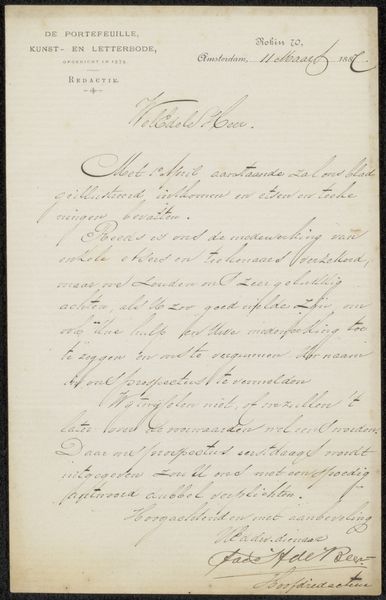 DE PORTEFEUILLE,
KUNST- EN LETTERBODE,
OPGERICHT IN 1879.
REDACTIE.
Rokin 70.
Amsterdam, 11 Maart 188
WelEdele Heer.
Met 1 April aanstaande zal ons blad
geïllustreerd uitkomen en etsen en teeke
ningen bevatten.
Reeds is ons de medewerking van
enkele etsers en teekenaars verzekerd,
maar we zouden ons zeer gelukkig
achten, als U zoo goed wilde zijn, om
ook Uwe hulp en Uwe medewerking toe
te zeggen en ons te vergunnen Uw naam
in ons prospectus te vermelden
Wij twijfelen niet, of we zullen 't
later over de voorwaarden wel eens worden.
Daar ons prospectus eerstdaags wordt
uitgegeven zou U ons met een spoedig
antwoord dubbel verplichten.
Hoogachtend en met aanbeveling
UEd. dw. dienaar
de Beer
Hoofdredacteur